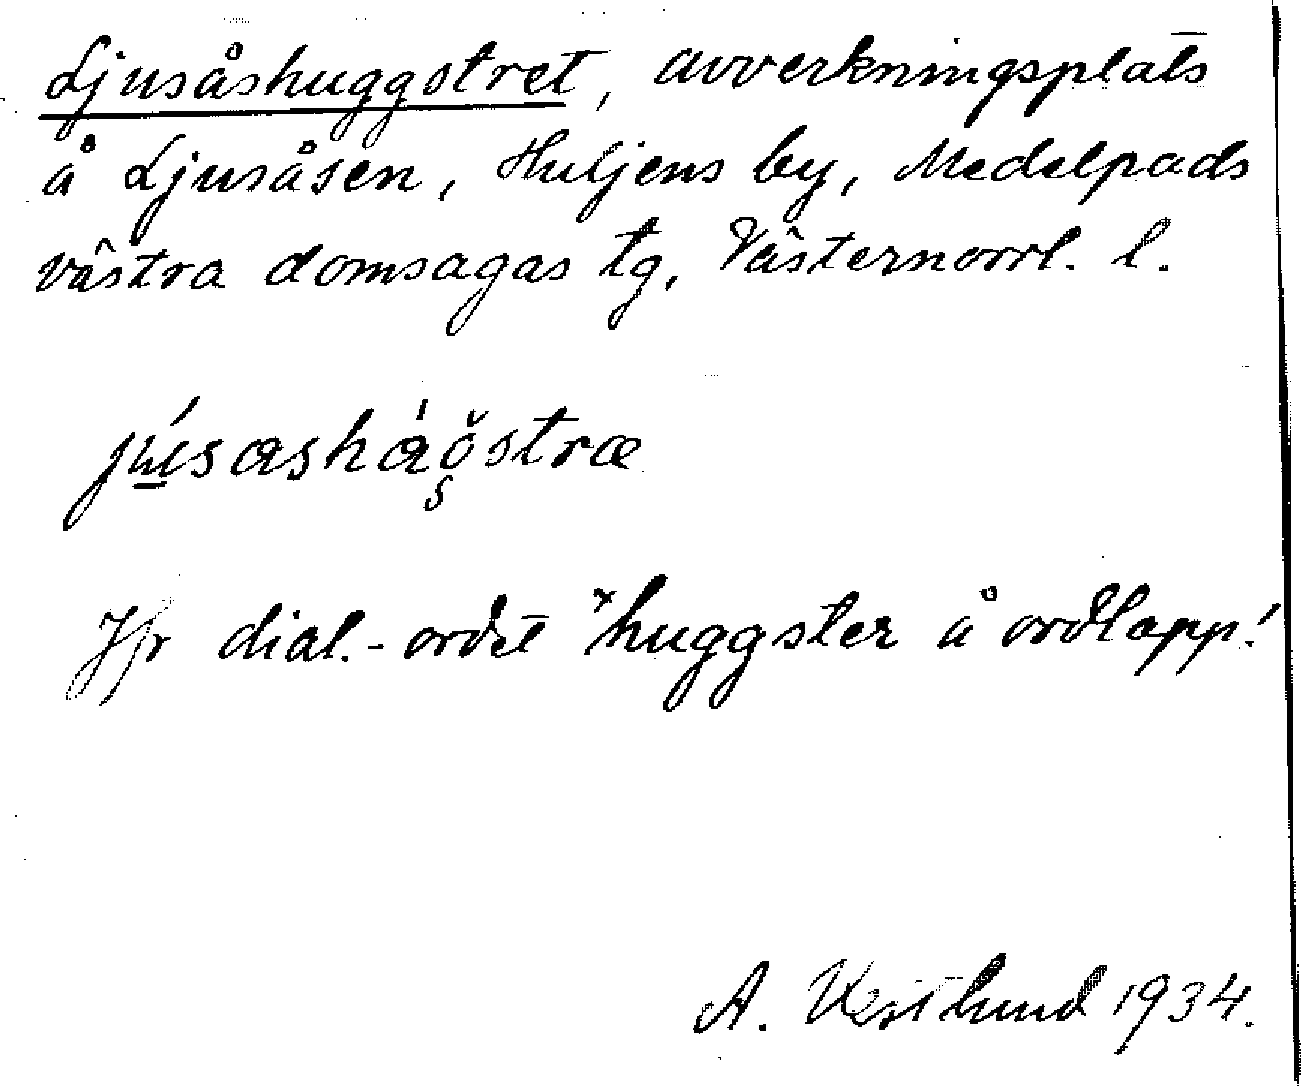 Ljusåshuggstret, avverkningsplats
å Ljusåsen, Huljens by, Medelpads
västra domsagas tg, Västernorrl. l.
Jfr dial.-ordet *huggster å ordlapp!
A. Westlund 1934.